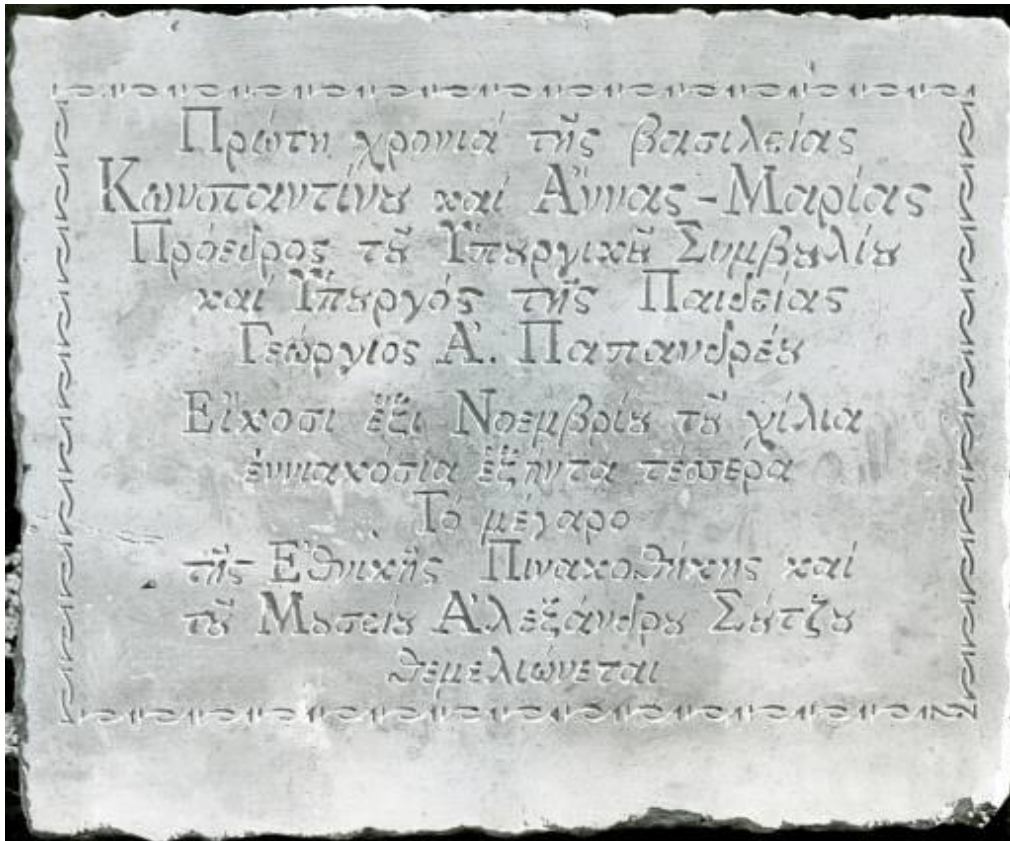 Πρώτη χρονιά τῆς βασιλείας
Κωνσταντίνȣ καί Ἄννας-Μαρίας
Πρόεδρος τȣ͂ Ὑπȣργικȣ͂ Συμβȣλίȣ
καί Ὑπȣργός τῆς Παιδείας
Γεώργιος Ἀ. Παπανδρέȣ
Εἴκοσι ἕξι Νοεμβρίȣ τȣ͂ χίλια
ἐννιακόσια ἑξῆντα τέσσερα
Τό μέγαρο
τῆς Ἐθνικῆς Πινακοθήκης καί
τȣ͂ Μȣσείȣ Ἀλεξάνδρȣ Σȣ́τζȣ
θεμελιώνεται